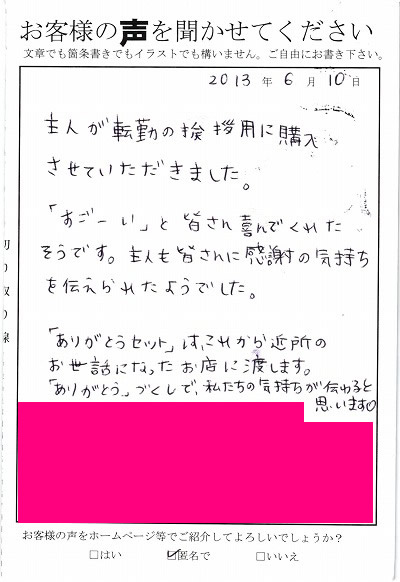 お客様の声を聞かせてください
文章でも箇条書きでもイラストでも構いません。ご自由にお書き下さい。
2013 年 6 月 10 日
主人が転勤の挨拶用に購入
させていただきました。
「すごーい」と皆さん喜んでくれた
そうです。主人も皆さんに感謝の気持ち
を伝えられたようでした。
「ありがとうセット」は、これから近所の
お世話になったお店に渡します。
「ありがとう」づくしで、私たちの気持ちが伝わると
思います。
切り取り線
お客様の声をホームページ等でご紹介してよろしいでしょうか？
□はい ☑匿名で □いいえ